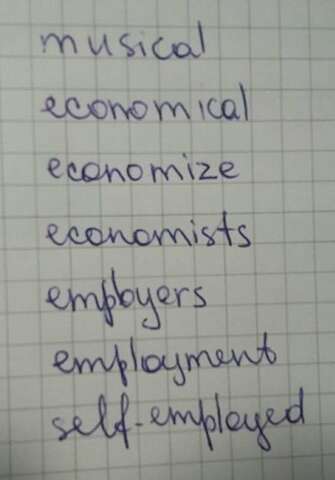 musical
economical
economize
economists
employers
employment
self-employed